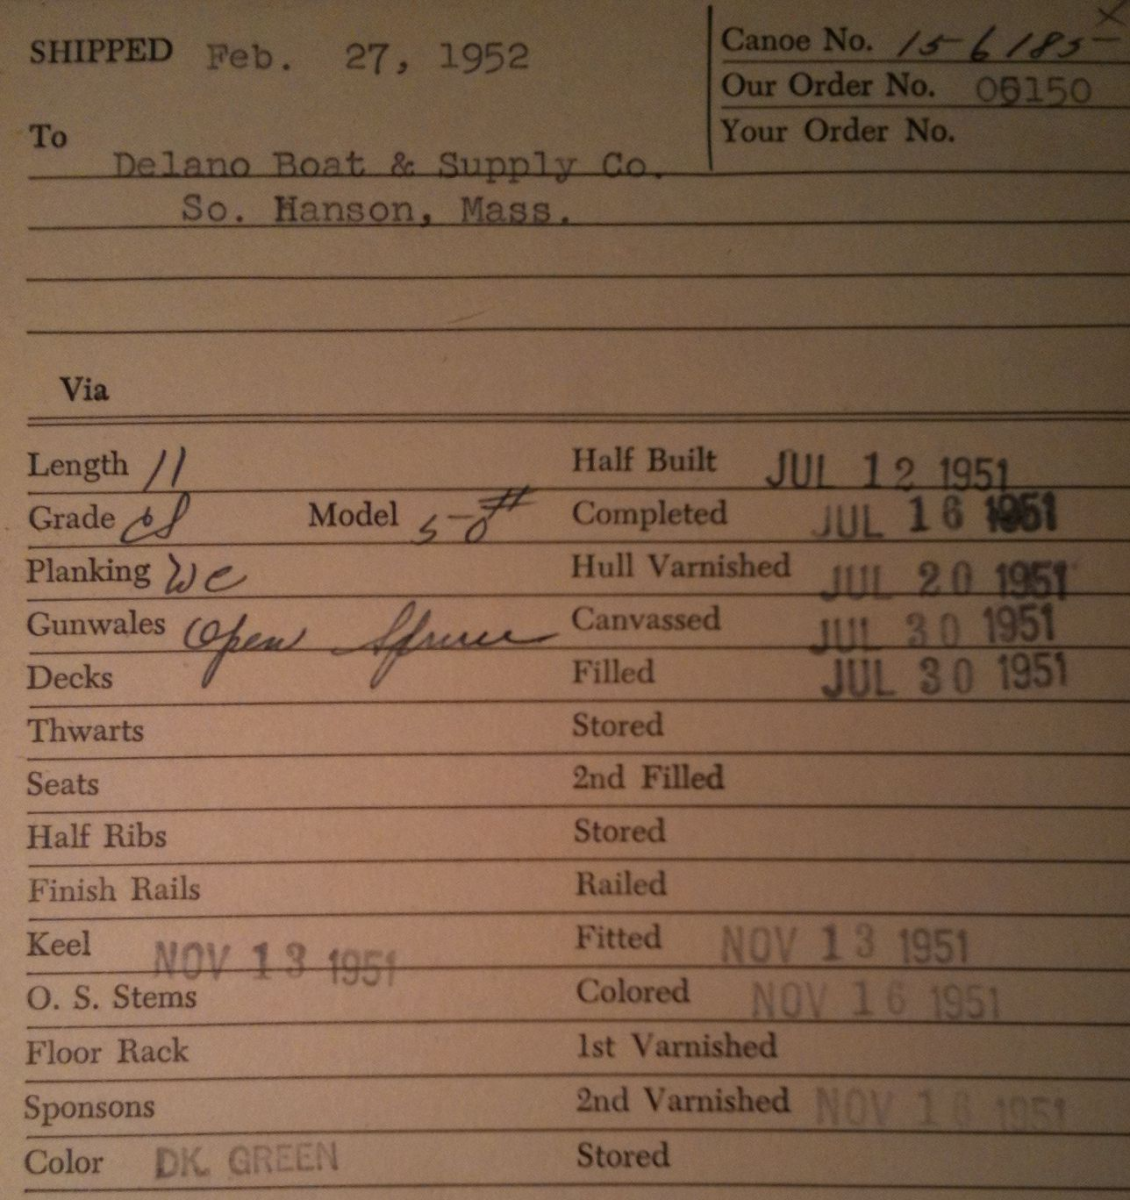 SHIPPED Feb. 27, 1952
Canoe No. 15-6185-
Our Order No. 06150
Your Order No.
To
Delano Boat & Supply Co.
So. Hanson, Mass.
Via
Length 11 Half Built JUL 12 1951
Grade Model 50# Completed JUL 16 1951
Planking WC Hull Varnished JUL 20 1951
Gunwales Open Spruce Canvassed JUL 30 1951
Decks Filled JUL 30 1951
Thwarts Stored
Seats 2nd Filled
Half Ribs Stored
Finish Rails Railed
Keel NOV 13 1951 Fitted NOV 13 1951
O. S. Stems Colored NOV 16 1951
Floor Rack 1st Varnished
Sponsons 2nd Varnished NOV 16 1951
Color DK. GREEN Stored